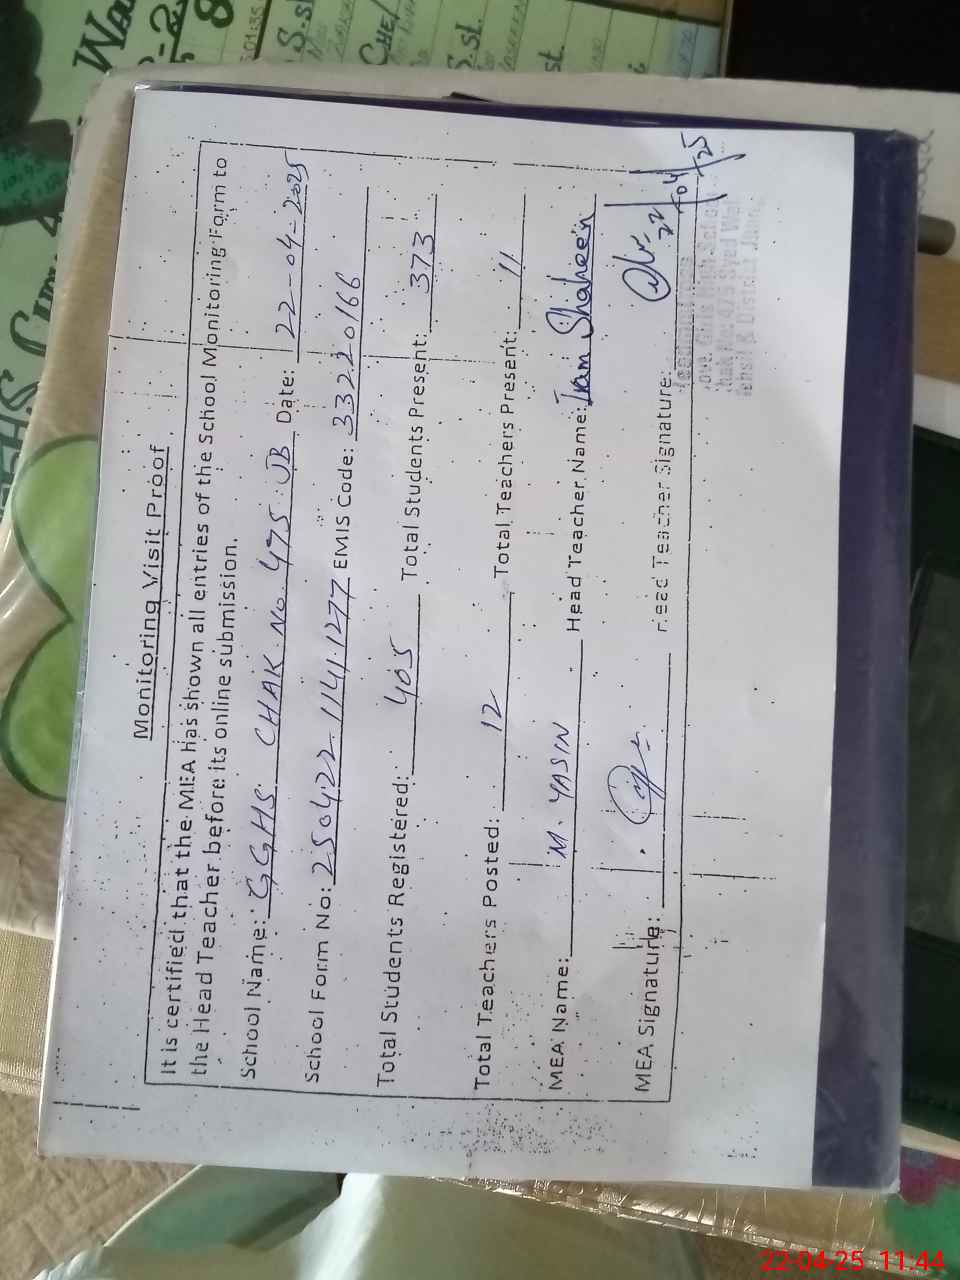 Monitoring Visit Proof
It is certified that the MEA has shown all entries of the School Monitoring Form to
the Head Teacher before its online submission.
School Name: GGHS CHAK No. 475 JB Date: 22-04-2025
School Form No: 250422 11411277 EMIS Code: 33220166
Total Students Registered: 405 Total Students Present: 373
Total Teachers Posted: 12 Total Teachers Present: 11
MEA Name: M. YASIN Head Teacher Name: Iram Shaheen
MEA Signature: Head Teacher Signature:
22/04/25
Govt. Girls High School
Chak No. 475
Tehsil & District Jhang
22-04-25 11:44